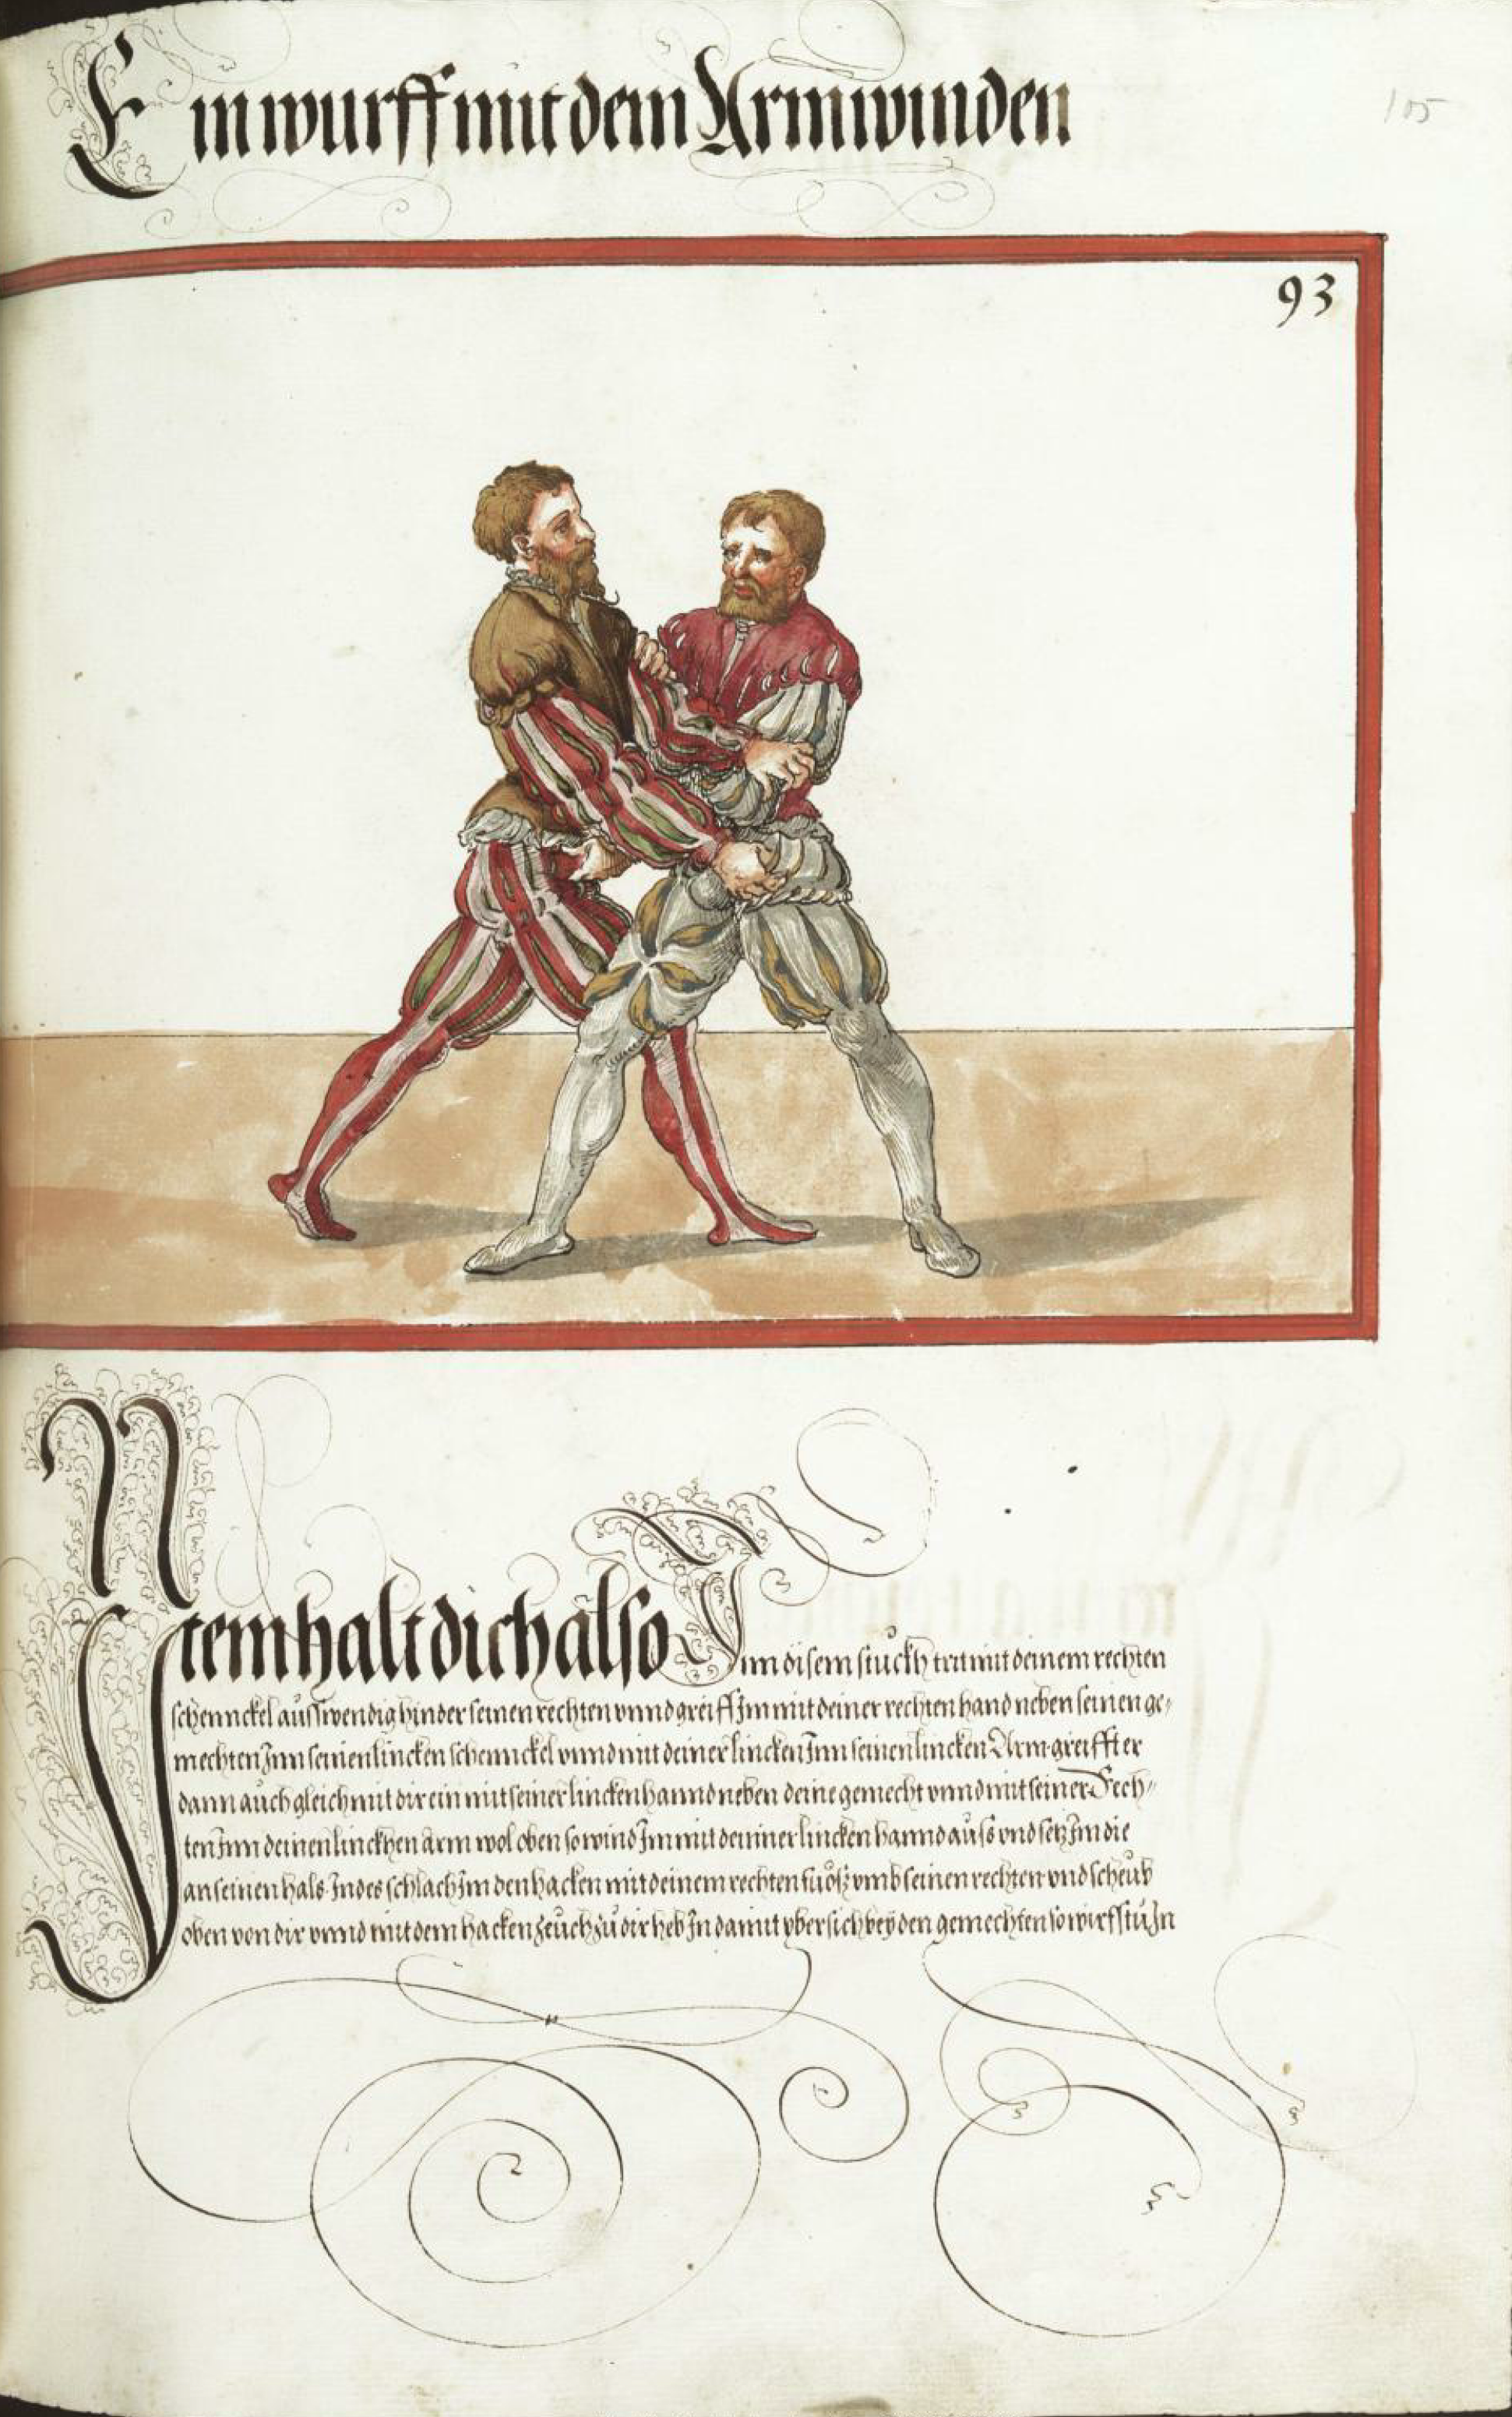 Ein wurff mit dem Armwinden
105
93
Item halt dich also Inn disem stuckh trit mit deinem rechten
schennckel ausswendig hinder seinen rechten vnnd greiff Im mit deiner rechten hand neben seinen ge-
mechten Inn seinen lincken schennckel vnnd mit deiner lincken Inn seinen lincken Arm greifft er
dann auch gleich mit dir ein mit seiner lincken hannd neben deine gemecht vnnd mit seiner Rech-
ten Inn deinen linckhen arm wol oben so wind Im mit deiner lincken hannd auss vnd setz Im die
an seinen hals Indes schlach Im den hacken mit deinem rechten fuosz vmb seinen rechten vnd scheub
oben von dir vnnd mit dem hacken zeuch zu dir heb In damit vbersich bey den gemechten so wirfstu In